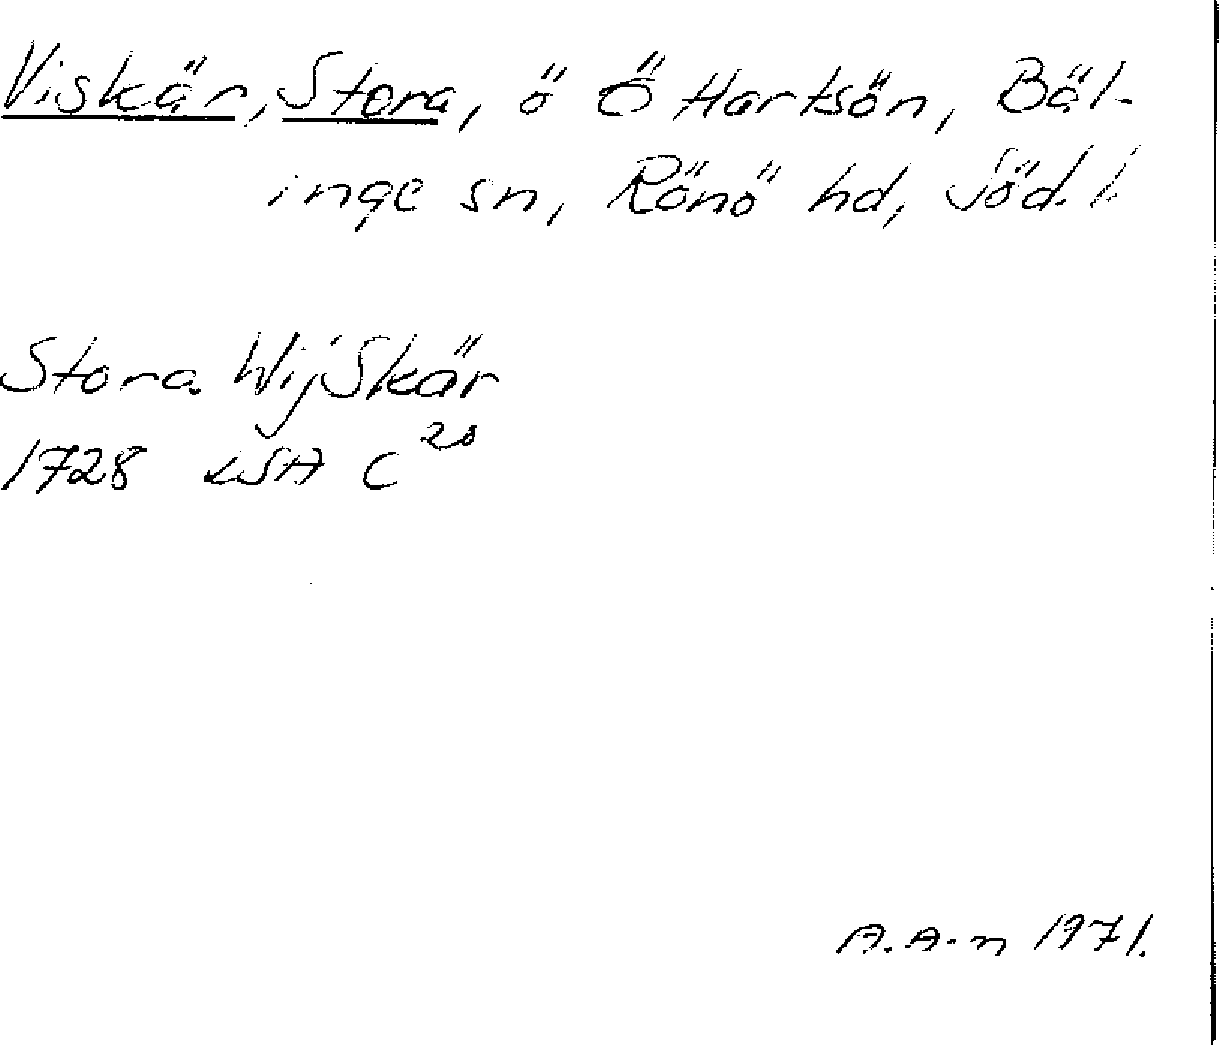 Viskär, Stora, ö Ö Hartsön, Bäl-
inge sn, Rönö hd, Söd. l.
Stora WijSkär
1728 LSA C 20
A. A-n 1971.